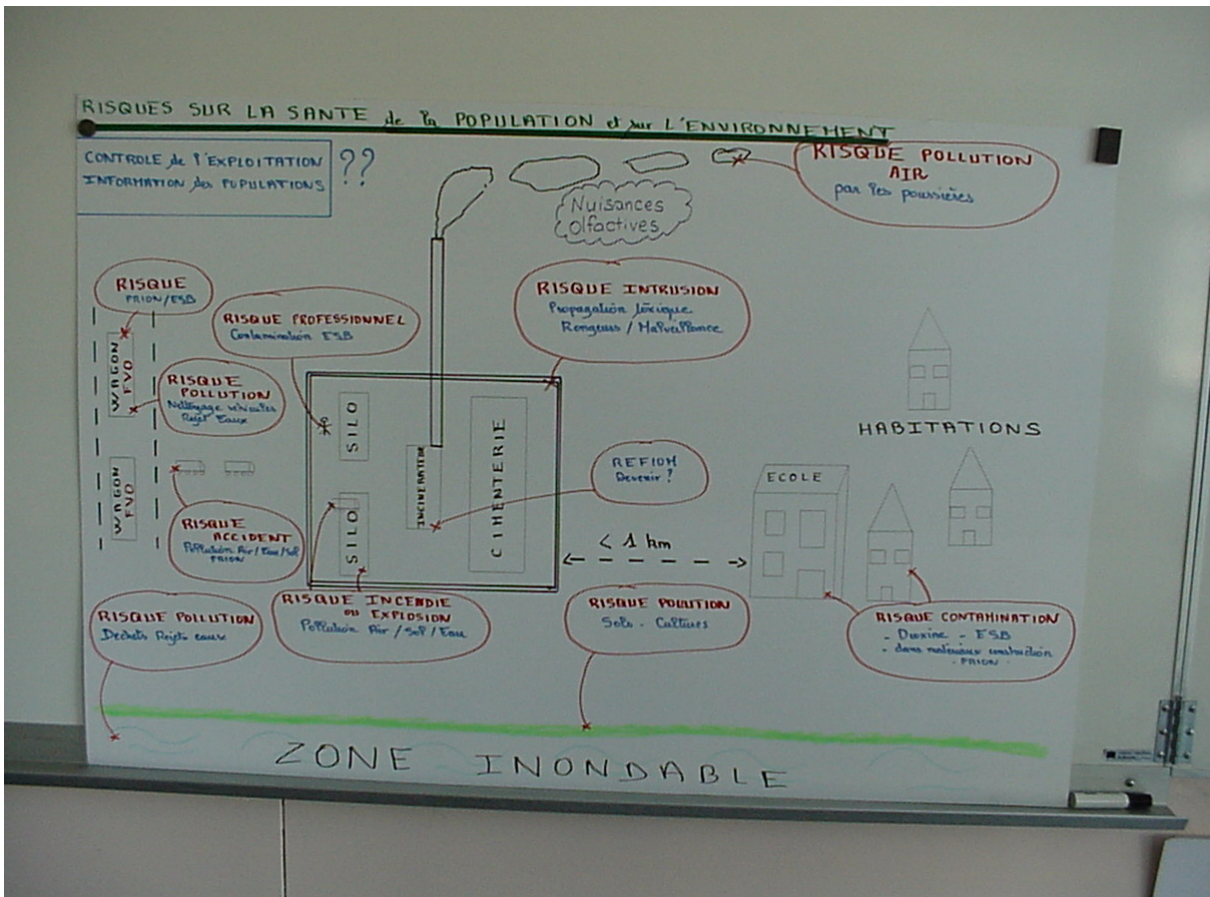 RISQUES SUR LA SANTE de la POPULATION et sur L'ENVIRONNEMENT
CONTROLE de l'EXPLOITATION
INFORMATION des POPULATIONS
??
RISQUE POLLUTION
AIR
par les poussières
Nuisances
Olfactives
RISQUE
PRION/ESB
RISQUE PROFESSIONNEL
Contamination ESB
RISQUE INTRUSION
Propagation toxique
Rongeurs / Malveillance
WAGON
FVO
RISQUE
POLLUTION
Nettoyage véhicules
Rejet Eaux
SILO
INCINERATEUR
CIMENTERIE
HABITATIONS
REFIOM
Devenir ?
ECOLE
WAGON
FVO
RISQUE
ACCIDENT
Pollution Air / Eau / Sol
PRION
SILO
< 1 km
RISQUE POLLUTION
Dechets Rejets eaux
RISQUE INCENDIE
ou EXPLOSION
Pollution Air / Sol / Eau
RISQUE POLLUTION
Sols - Cultures
RISQUE CONTAMINATION
- Dioxine - ESB
- dans matériaux construction
- PRION -
ZONE INONDABLE